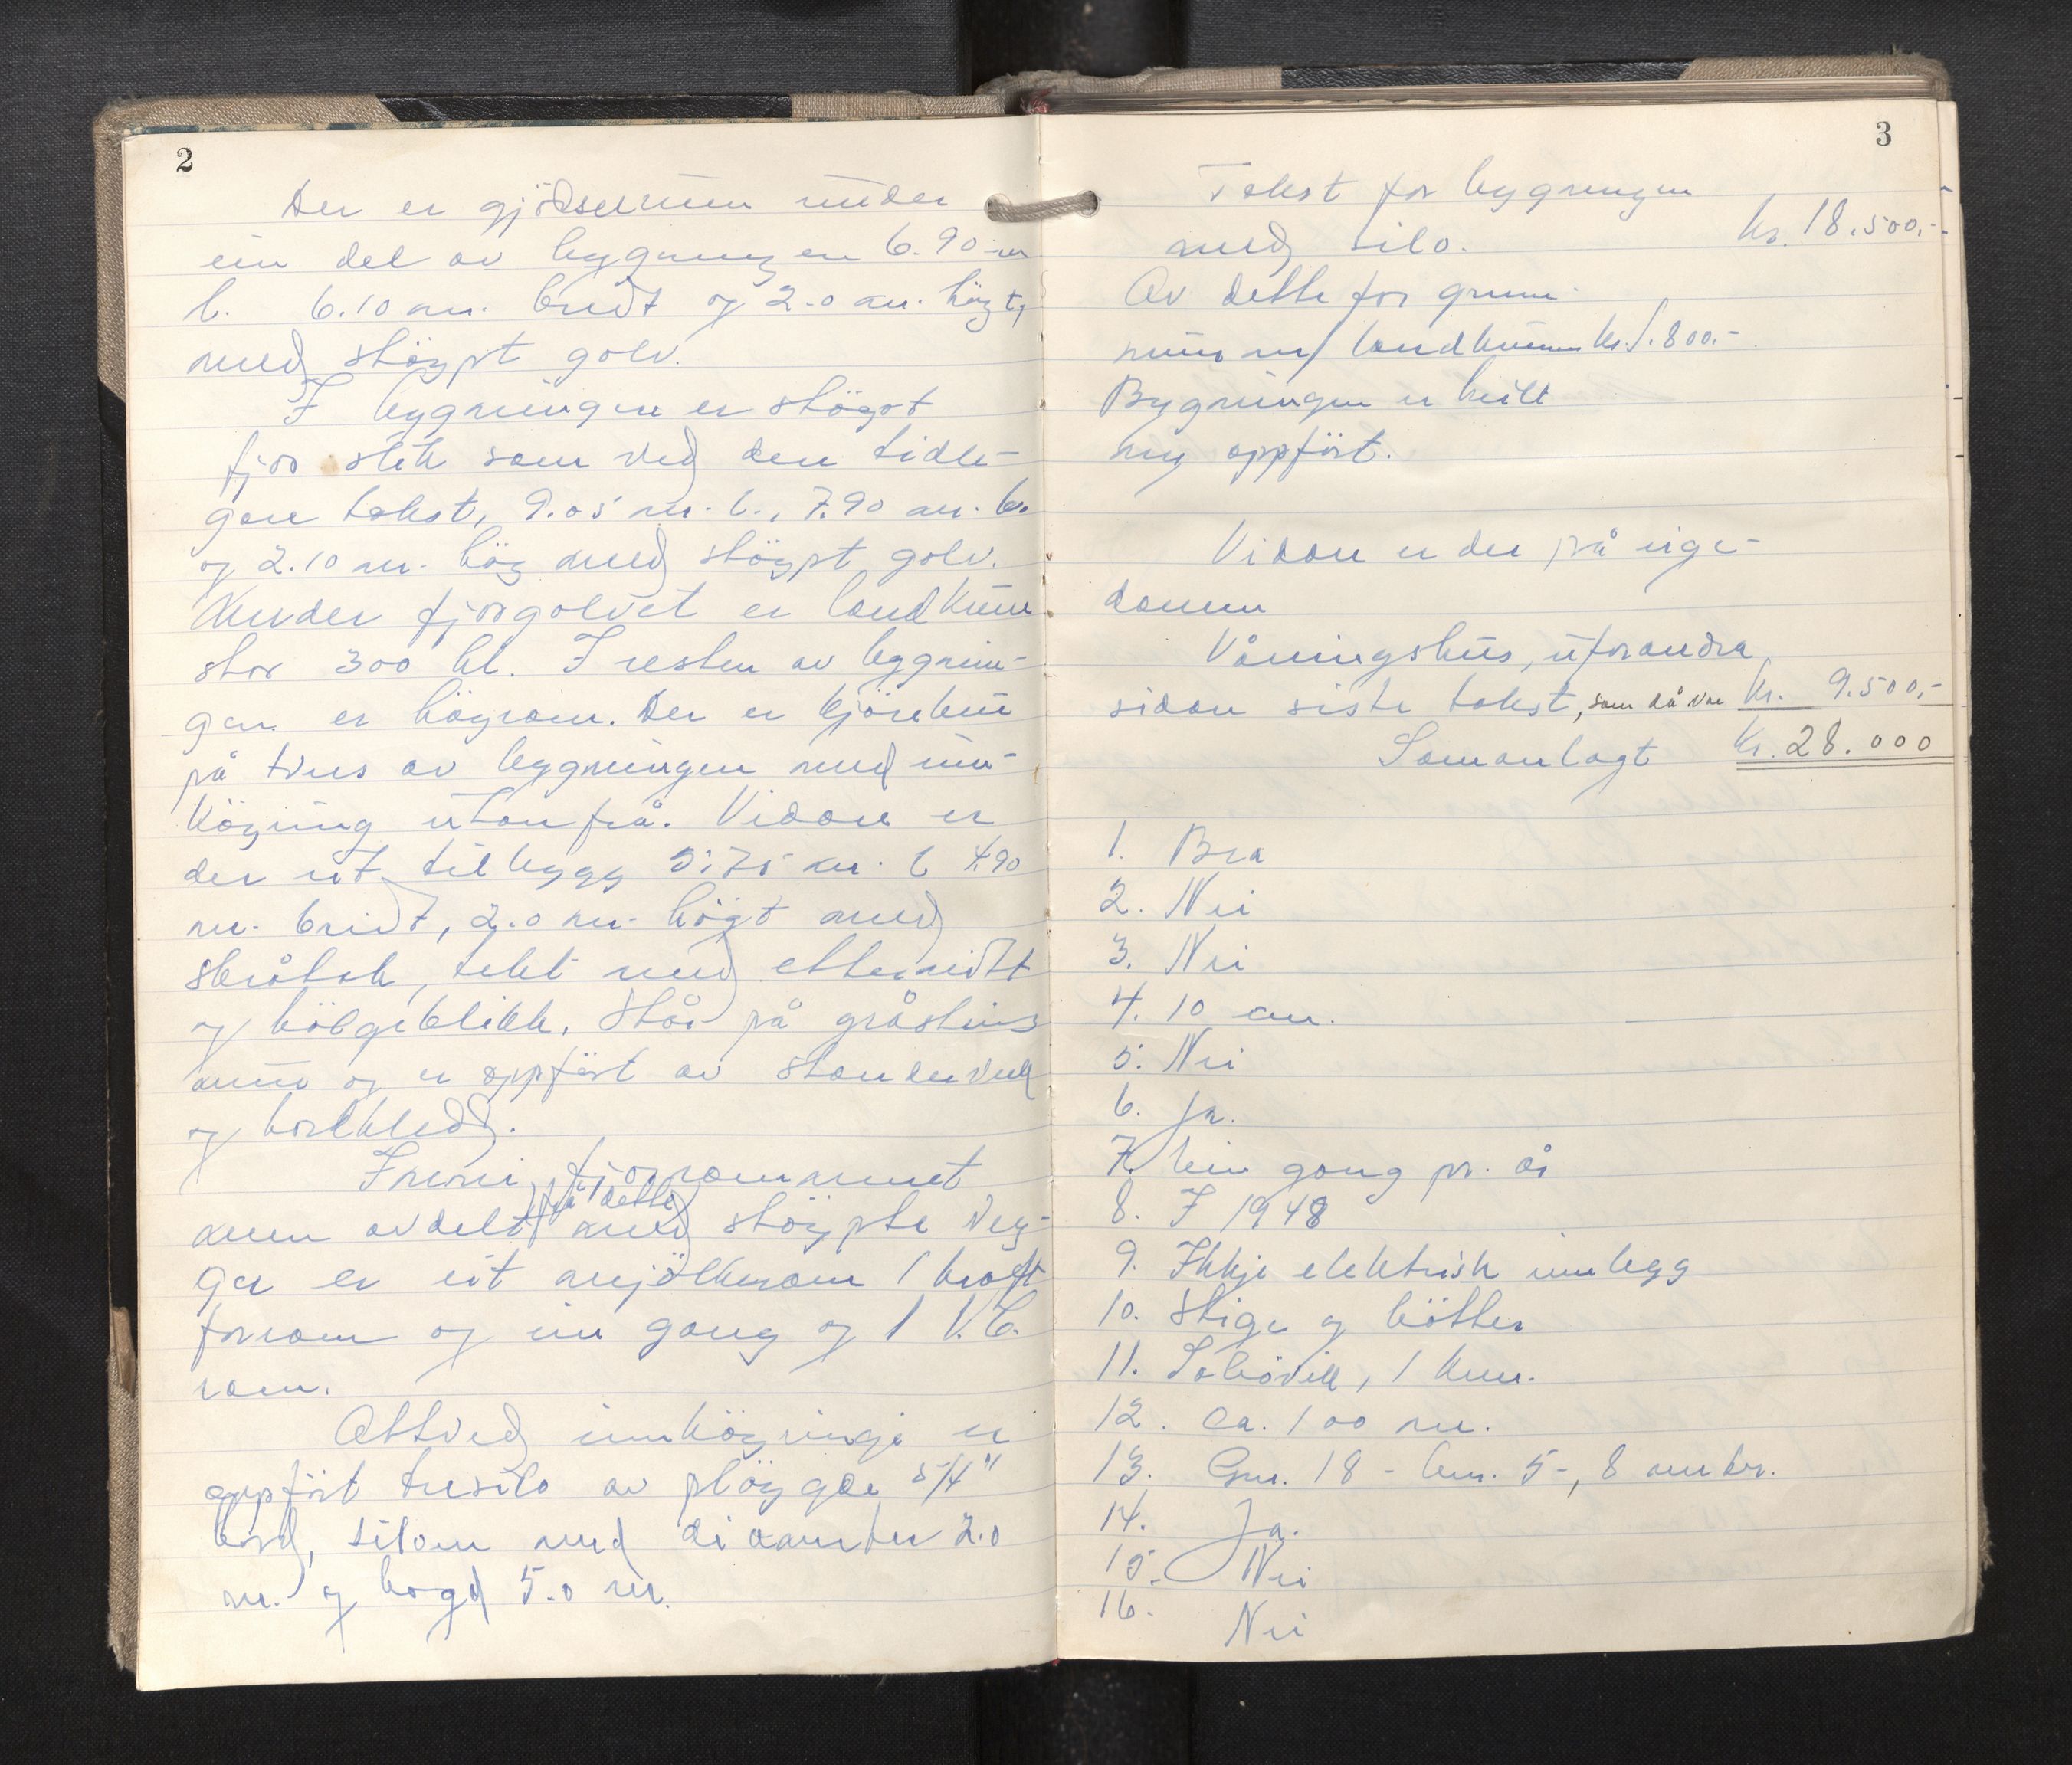 2
Der er gjödselrum under
ein del av bygningen 6.90 m
l. 6.10 m. breidt og 2.0 m. högt,
med stöypt golv.
I bygningen er stöypt
fjos slik som ved den tidle-
gare takst, 9.05 m. l., 7.90 m. b.
og 2.10 m. hög med stöypt golv.
Under fjosgolvet er landkum
stor 300 hl. I resten av bygnin-
gen er höyrom. Der er kjörebru
på tvers av bygningen med inn-
köyring utanfrå. Vidare er
der eit tilbygg 5.75 m. l 4.90
m. breidt, 2.0 m. högt med
skråtak, tekt med etternitt
og bölgeblikk. Står på gråsteins
mur og er oppfört av standerverk
og bordkledd.
Inni fjosrommet
men avdelt frå dette med stöypte veg-
ger er eit mjölkerom 1 kraft
forrom og ein gang og 1 V.C.
rom.
Attved innköyringi er
oppfört tresilo av plöygde 5/4"
bord, siloen med diameter 2.0
m. og hogd 5.0 m.
3
Takst for bygningen
med silo. kr. 18.500,-
Av dette for grunn-
mur m/ landkum kr. 1.800.-
Bygningen er heilt
ny oppfört.
Vidare er der på eige-
domen
Våningshus, uforandra
sidan siste takst, som då var kr. 9.500,-
Samanlagt kr. 28.000
1. Bra
2. Nei
3. Nei
4. 10 m.
5. Nei
6. Ja.
7. Ein gong pr. år
8. I 1948
9. Ikkje elektrisk innlegg
10. Stige og bötter
11. , 1 km.
12. Ca. 100 m.
13. Gnr. 18 - bnr. 5-, 8 m br.
14. Ja.
15. Nei
16. Nei